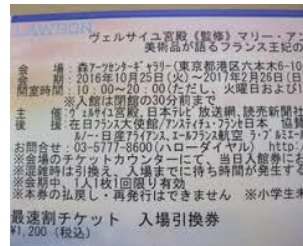 LAWSON
ヴェルサイユ宮殿《監修》マリー・アン
美術品が語るフランス王妃の
会　　場：森アーツセンターギャラリー(東京都港区六本木6-10
会　　期：2016年10月25日(火)～2017年2月26日(日)
開室時間：10:00～20:00(ただし、火曜日および
※入館は閉館の30分前まで
主　　催：ヴェルサイユ宮殿、日本テレビ放送網、読売新聞社
後　　援：在日フランス大使館/アンスティチュ・フランセ日本　協賛
ルノー・日産アライアンス、エールフランス航空
お問合せ：03-5777-8600(ハローダイヤル)　http:/
※会場のチケットカウンターにて、当日入館券に
※混雑時は引換え、入場までに待ち時間が発生する
※会期中、1人1枚1回限り有効
※本券の払戻し・再発行はできません　※小学生未
最速割チケット　入場引換券
¥1,200(税込)